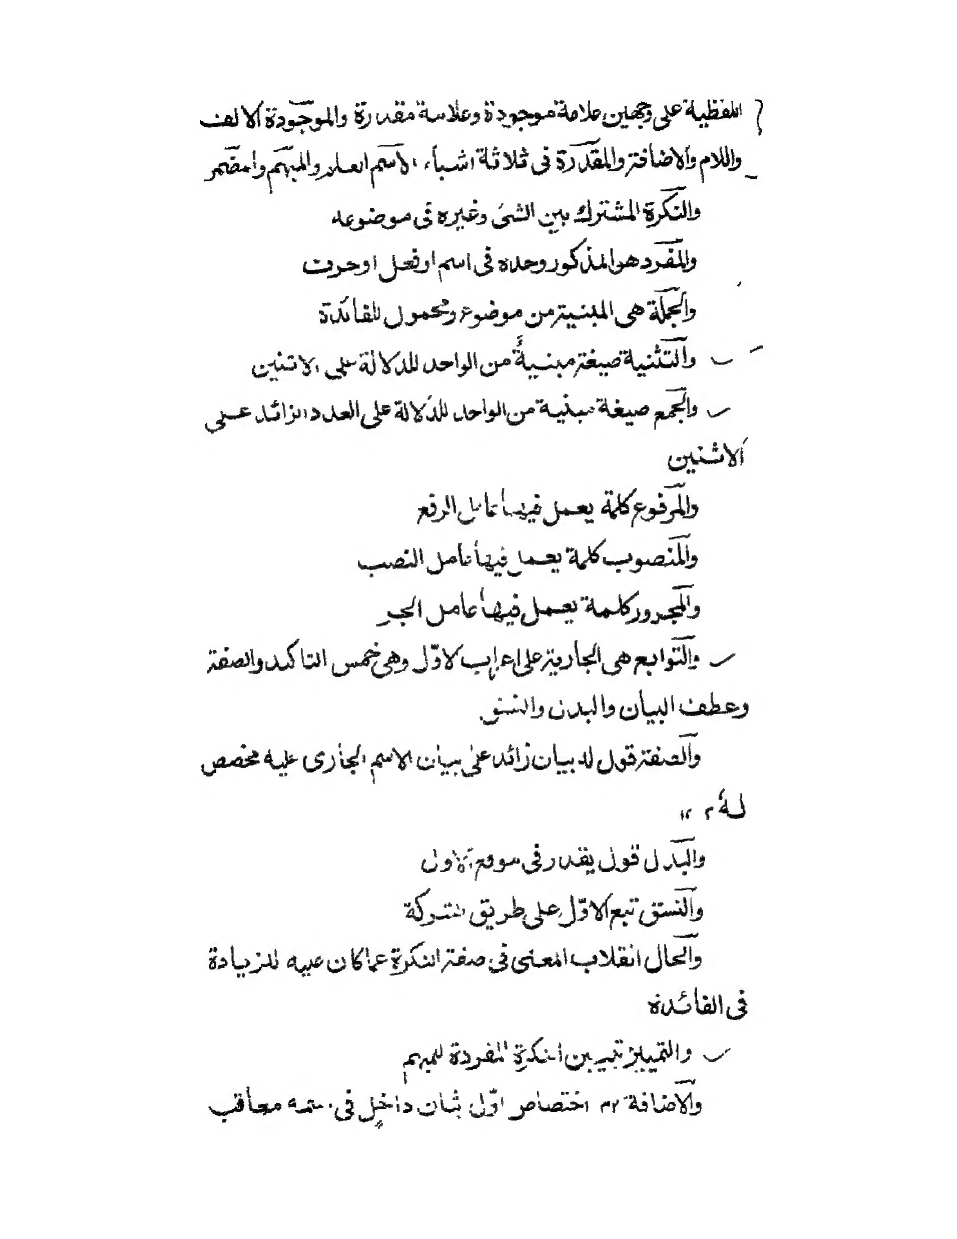 اللفظية على وجهين علامة موجودة وعلامة مقدرة والموجودة الالف
واللام والاضافة والمقدّرة فى ثلاثة اشياء الاسم العلم والمبهم والمضمر
والنكرة المشترك بين الشئ وغيره فى موضوعه
والمفرد هو المذكور وحده فى اسم او فعل او حرف
والجملة هى المبنية من موضوع ومحمول للفائدة
والتثنية صيغة مبنيةٌ من الواحد للدلالة على الاثنين
والجمع صيغة مبنية من الواحد للدّلالة على العدد الزائد على
الاثنين
والمرفوع كلمة يعمل فيها عامل الرفع
والمنصوب كلمة يعمل فيها عامل النصب
والمجرور كلمة يعمل فيها عامل الجر
والتوابع هى الجارية على اعراب الاوّل وهى خمس التاكيد والصفة
وعطف البيان والبدل والنسق
والصفة قول له بيان زائد على بيان الاسم الجارى عليه مخصص
له
والبدل قول يقدر فى موقع الاول
والنسق تبع الاوّل على طريق الشركة
والحال انقلاب المعنى فى صفة النكرة عما كان عليه للزيادة
فى الفائدة
والتمييز تبيين النكرة المفردة للمبهم
والاضافة اختصاص اوّل بثان داخل فى معاقب